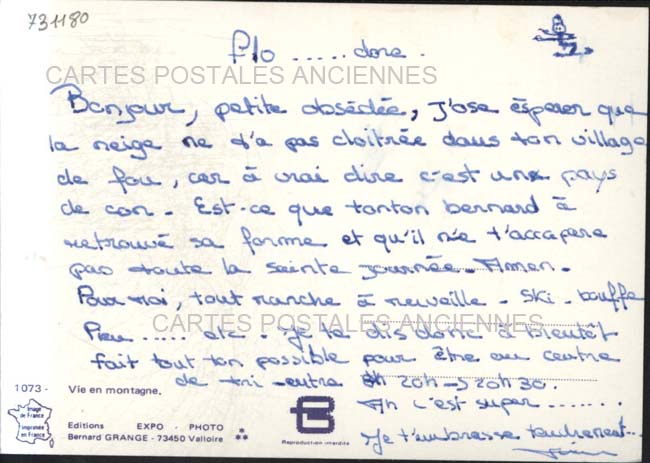 731180
Flo ..... donc.
CARTES POSTALES ANCIENNES
Bonjour, petite obsédée, j'ose éspérer que
la neige ne t'a pas cloitrée dans ton village
de fou, car à vrai dire c'est un pays
de con - Est-ce que tonton bernard à
retrouvé sa forme et qu'il ne t'accapere
pas toute la sainte journée. Amen -
Pour moi, tout marche à merveille - Ski - bouffe
Pieu ..... etc - je te dis donc à bientôt
CARTES POSTALES ANCIENNES
fait tout ton possible pour être au centre
de tri - entre 20h → 20h30.
1073 - Vie en montagne.
Ah c'est super .......
Image de France
imprimée en France
Editions EXPO - PHOTO
Bernard GRANGE - 73450 Valloire
Reproduction interdite
Je t'embrasse tendrement...